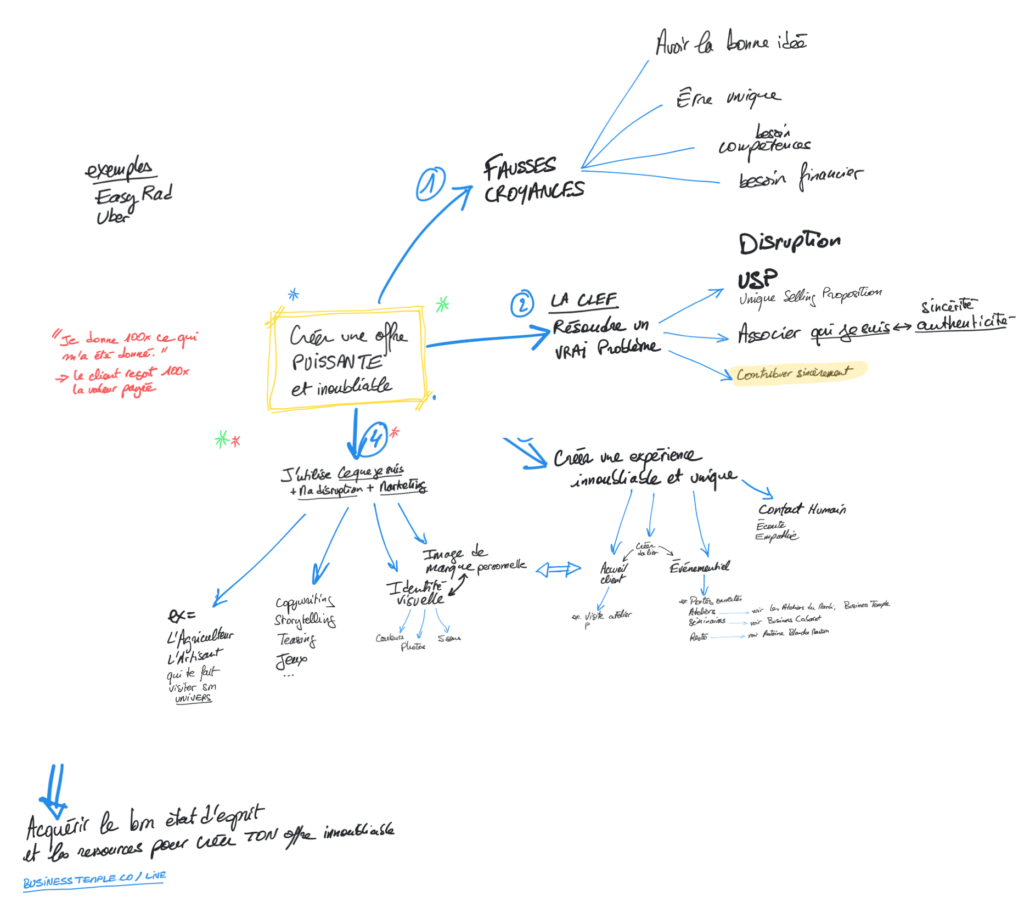 Avoir la bonne idée
Être unique
besoin
compétences
besoin financier
1
FAUSSES
CROYANCES
exemples
Easy Rad
Uber
Disruption
USP
Unique Selling Proposition
Associer qui je suis ↔ authenticité
sincérité
Contribuer sincèrement
2
LA CLEF
Résoudre un
VRAI Problème
Créer une offre
PUISSANTE
et inoubliable
"Je donne 100x ce qui
m'a été donné."
→ le client reçoit 100x
la valeur payée
4
J'utilise ce que je suis
+ Ma disruption + Marketing
Créer une expérience
innoubliable et unique
Contact Humain
Écoute
Empathie
Image de
marque personnelle
Identité
visuelle
Couleurs
Photos
Créer
Accueil
client
Événementiel
ex. Visite atelier
Portes ouvertes
Ateliers
voir les Ateliers du Business Temple
Séminaires
voir Business Cabaret
voir Antoine
ex=
L'Agriculteur
L'Artisant
qui te fait
visiter son
UNIVERS
Copywriting
Storytelling
Teasing
Jeux
...
Acquérir le bon état d'esprit
et les ressources pour créer TON offre innoubliable
BUSINESSTEMPLE.CO/LIVE